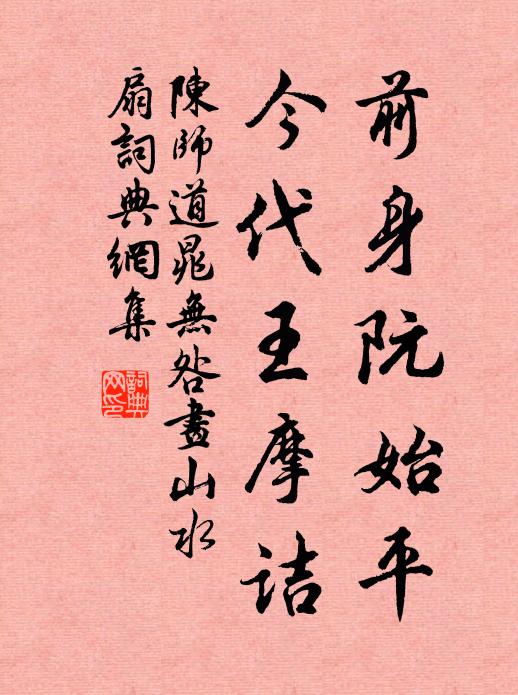 前身阮始平
今代王摩詰
陳師道晁無咎畫山水
扇詞典網集
詞典
网印